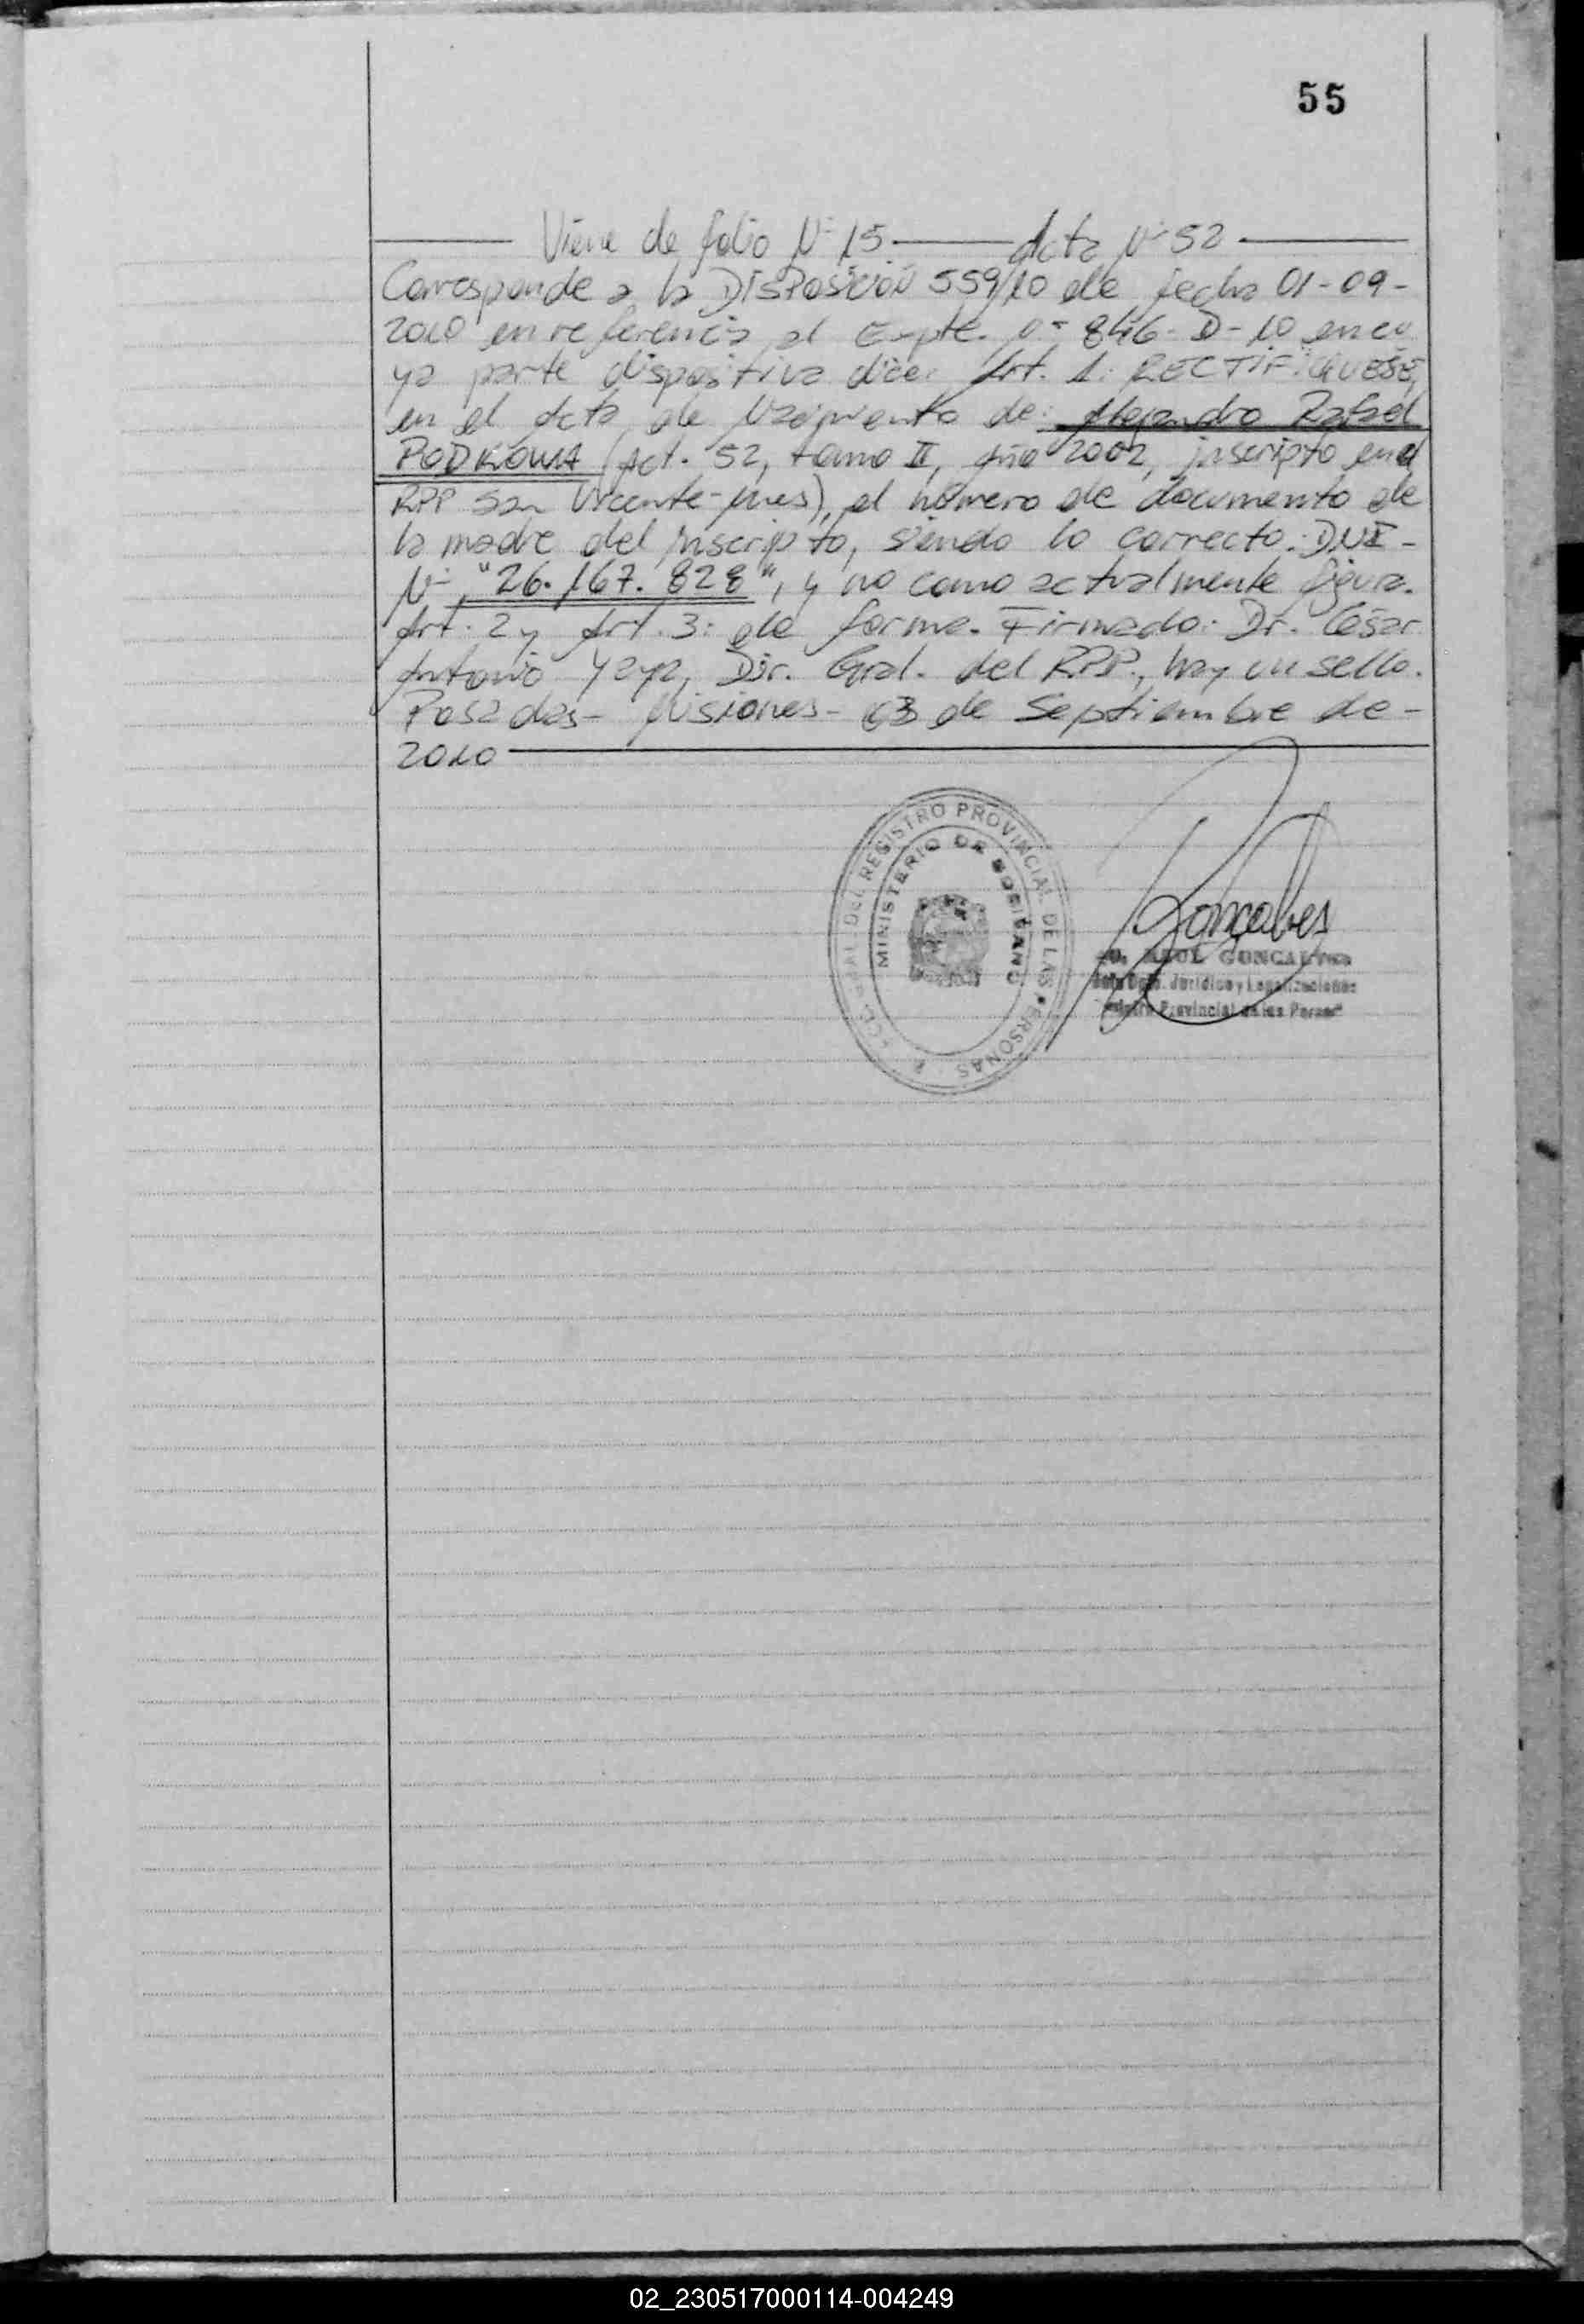 55
Viene de folio Nº 15 Acta Nº 52
Corresponde a la DISPOSICIÓN 559/10 de fecha 01-09-
2010 en referencia al Expte. nº 846-D-10 en cu
ya parte dispositiva dice: Art. 1: RECTIFIQUESE,
en el acta de Nacimiento de: Alejandro Rafael
PODKOWA (Act. 52, tomo II, año 2002, inscripto en el
RPP San Vicente-Mnes), el número de documento de
la madre del inscripto, siendo lo correcto: DNI-
Nº "26.167.828", y no como actualmente figura.
Art. 2 y Art. 3: de forma. Firmado: Dr. César
Antonio Yaya, Dir. Gral. del RPP., hay un sello.
Posadas- Misiones- 03 de Septiembre de-
2010
REGISTRO PROVINCIAL DE LAS PERSONAS
MINISTERIO DE GOBIERNO
Goncalves
RAUL GONCALVES
Dpto. Jurídico y Legalizaciones
Provincial de las Person
02_230517000114-004249